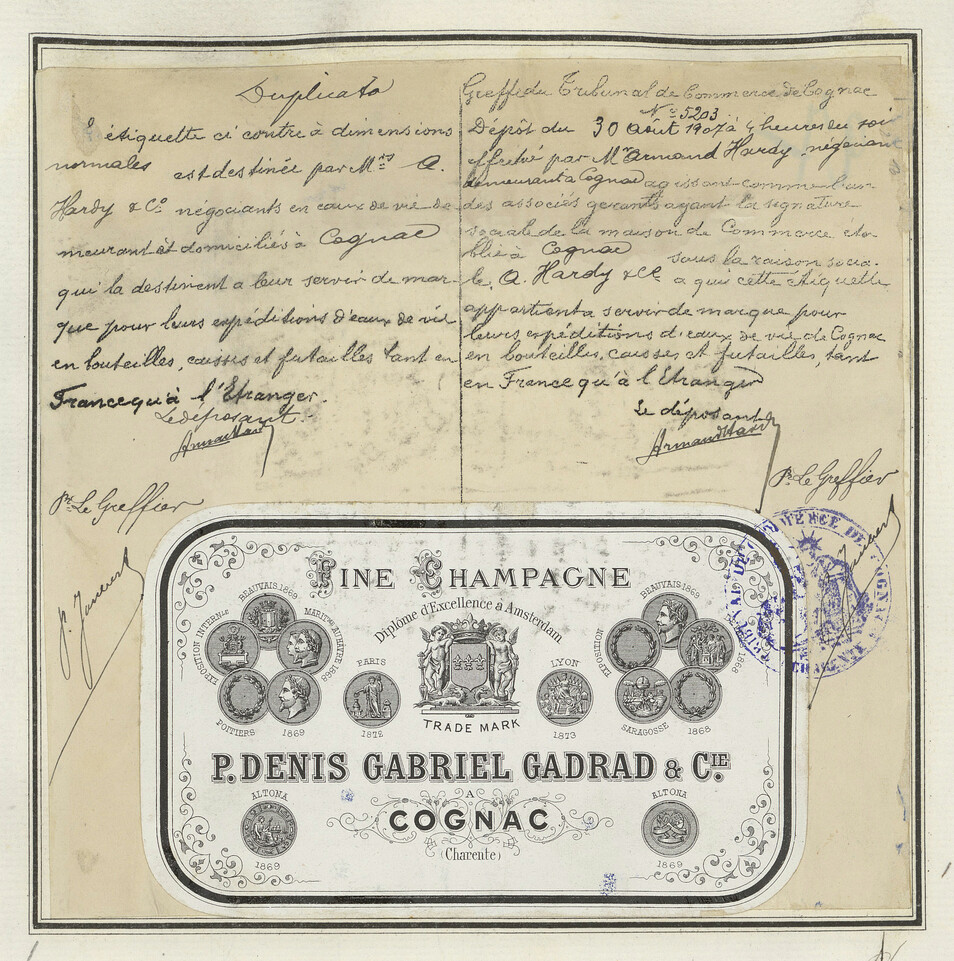 Duplicata
L'étiquette ci contre à dimensions
normales est destinée par Mrs A.
Hardy & Co négociants en eaux de vie de
meurant et domiciliés à Cognac
qui la destinent a leur servir de mar-
que pour leurs expéditions d'eaux de vie
en bouteilles, caisses et futailles tant en
France qu'à l'Etranger.
Le déposant.
Armand Hardy
Pr Le Greffier
Greffe du Tribunal de Commerce de Cognac
No 5203
Dépôt du 30 Août 1907 à 4 heures du soir
effectué par Mr Armand Hardy, négociant
demeurant a Cognac agissant comme l'un
des associés gerants ayant la signature
sociale de la maison de Commerce éta-
blie à Cognac sous la raison socia-
le, A. Hardy & Ce a qui cette étiquette
appartient a servir de marque pour
leurs expéditions d'eaux de vie de Cognac
en bouteilles, caisses et futailles, tant
en France qu'à l'Etranger
Le déposant
Armand Hardy
Pr Le Greffier
FINE CHAMPAGNE
Diplôme d'Excellence à Amsterdam
BEAUVAIS 1869
EXPOSITION INTERNle
MARITme AU HAVRE 1868
POITIERS 1869
PARIS
1872
TRADE MARK
LYON
1873
BEAUVAIS 1869
EXPOSITION
1868
SARAGOSSE 1868
P. DENIS GABRIEL GADRAD & CIE
A
COGNAC
(Charente)
ALTONA
1869
ALTONA
1869
COMMERCE DE COGNAC
CHARENTE